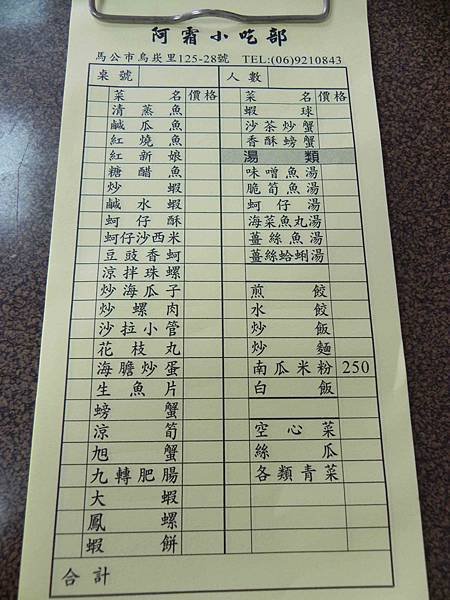 阿霜小吃部
馬公市烏崁里125-28號 TEL:(06)9210843
桌號 人數
菜名 價格 菜名 價格
清蒸魚 蝦球
鹹瓜魚 沙茶炒蟹
紅燒魚 香酥螃蟹
紅新娘 湯類
糖醋魚 味噌魚湯
炒蝦 脆筍魚湯
鹹水蝦 蚵仔湯
蚵仔酥 海菜魚丸湯
蚵仔沙西米 薑絲魚湯
豆豉香蚵 薑絲蛤蜊湯
涼拌珠螺
炒海瓜子 煎餃
炒螺肉 水餃
沙拉小管 炒飯
花枝丸 炒麵
海膽炒蛋 南瓜米粉 250
生魚片 白飯
螃蟹
涼筍 空心菜
旭蟹 絲瓜
九轉肥腸 各類青菜
大蝦
鳳螺
蝦餅
合計